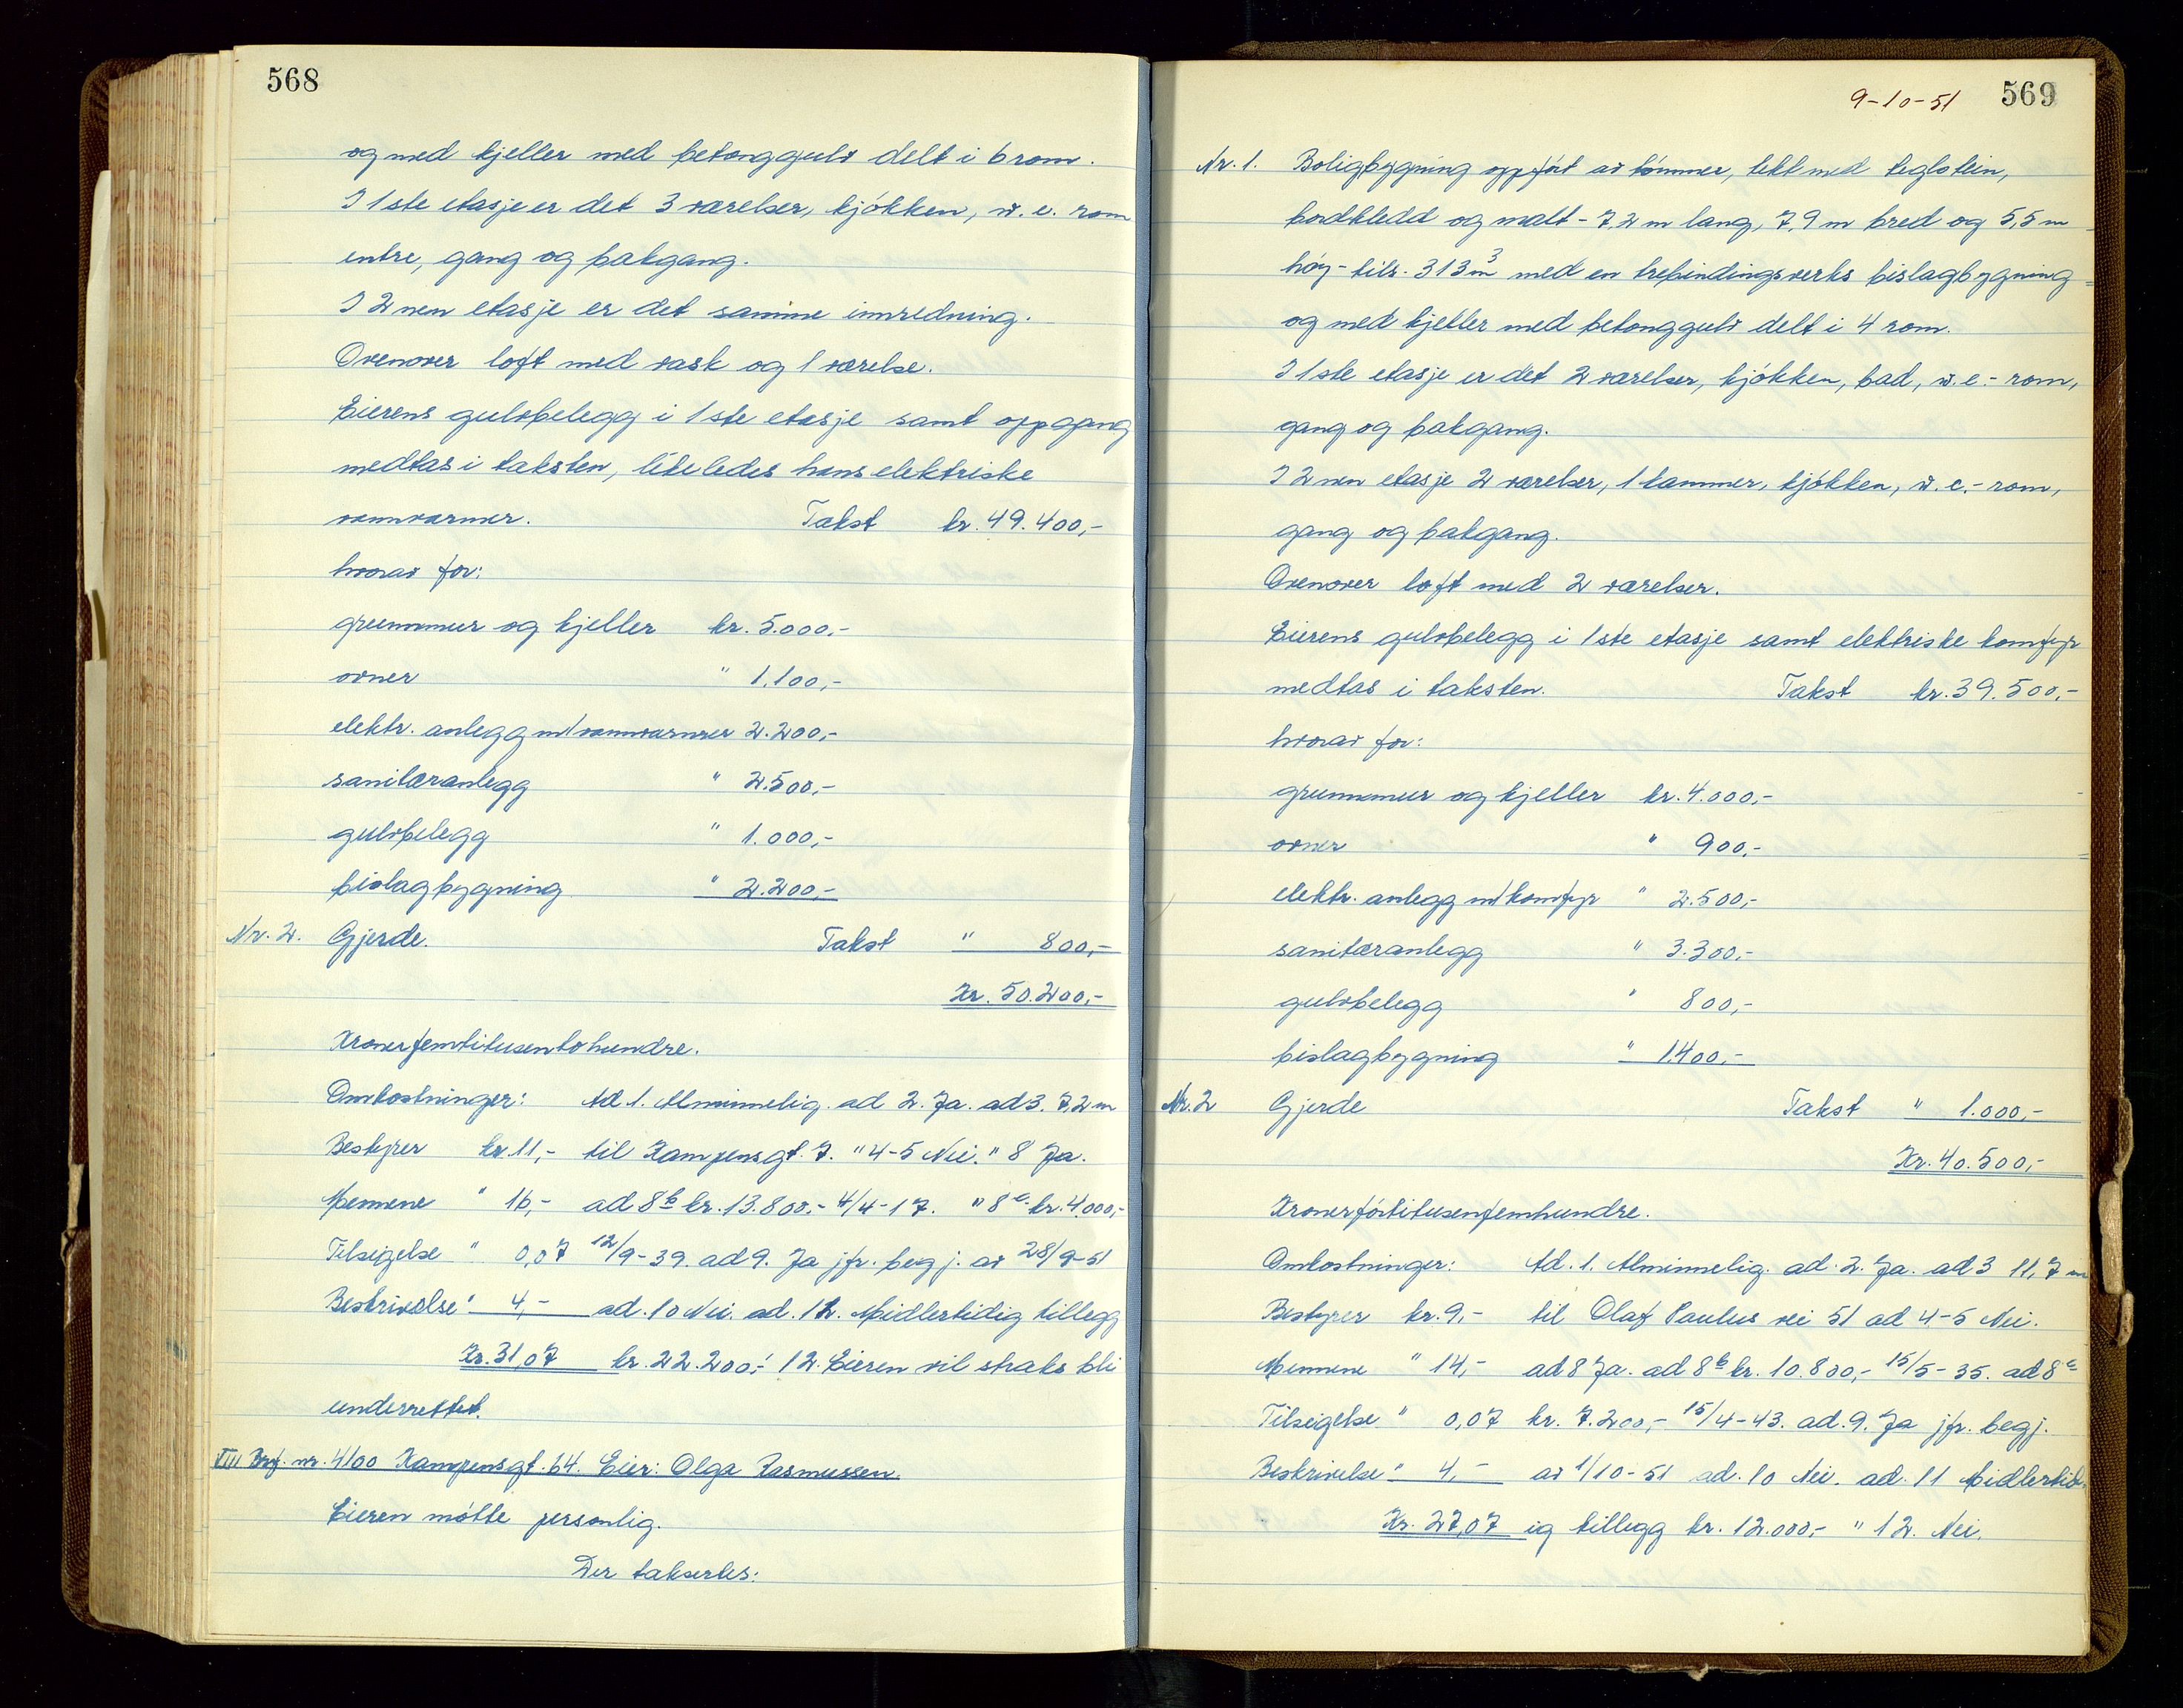 568
og med kjeller med betonggulv delt i 6 rom.
I 1ste etasje er det 3 værelser, kjøkken, w.c. rom
entre, gang og bakgang.
I 2nen etasje er det samme innredning.
Ovenover loft med vask og 1 værelse.
Eierens gulvbelegg i 1ste etasje samt oppgang
medtas i taksten, likeledes hans elektriske
vannvarmer. Takst kr. 49.400,-
hvorav for:
grunnmur og kjeller kr. 5.000,-
ovner " 1.100,-
elektr. anlegg m/vannvarmer 2.200,-
sanitæranlegg " 2.500,-
gulvbelegg " 1.000,-
bislagbygning " 2.200,-
Nr. 2. Gjerde. Takst " 800,-
Kr. 50.200,-
Kronerfemtitusentohundre.
Omkostninger: Ad 1. Alminnelig. ad 2. Ja. ad 3. 7,2 m
Bestyrer kr. 11,- til Kampensgt. 7. " 4-5 Nei. " 8 Ja.
Mennene " 16,- ad 8b kr. 13.800.- 4/4-17. " 8c kr. 4.000,-
Tilsigelse " 0,07 12/9-39. ad 9. Ja jfr. begj. av 28/9-51
Beskrivelse " 4,- ad. 10 Nei. ad. 11. Midlertidig tillegg
Kr. 31,07 kr. 22.200.- " 12. Eieren vil straks bli
underrettet.
VIII Brf. nr. 4100 Kampensgt. 64. Eier: Olga Rasmussen.
Eieren møtte personlig.
Der taksertes:
9-10-51 569
Nr. 1. Boligbygning oppført av tømmer, tekt med teglstein,
bordkledd og malt - 7,2 m lang, 7,9 m bred og 5,5 m
høy - tils. 313 m3 med en trebindingsverks bislagbygning
og med kjeller med betonggulv delt i 4 rom.
I 1ste etasje er det 2 værelser, kjøkken, bad, w.c.- rom,
gang og bakgang.
I 2nen etasje 2 værelser, 1 kammer, kjøkken, w.c.- rom,
gang og bakgang.
Ovenover loft med 2 værelser.
Eierens gulvbelegg i 1ste etasje samt elektriske komfyr
medtas i taksten. Takst kr. 39.500,-
hvorav for:
grunnmur og kjeller kr. 4.000,-
ovner " 900,-
elektr. anlegg m/komfyr " 2.500,-
sanitæranlegg " 3.300,-
gulvbelegg " 800,-
bislagbygning " 1.400,-
Nr. 2 Gjerde Takst " 1.000,-
Kr. 40.500,-
Kronerførtitusenfemhundre.
Omkostninger: Ad. 1. Alminnelig. ad. 2. Ja. ad 3 11,7 m
Bestyrer kr. 9,- til Olaf Paulus vei 51 ad 4-5 Nei.
Mennene " 14,- ad 8 Ja. ad 8b kr. 10.800,- 15/5-35. ad 8c
Tilsigelse " 0,07 kr. 7.200,- 15/4-43. ad. 9. Ja jfr. begj.
Beskrivelse " 4,- av 1/10-51 ad. 10 Nei. ad. 11 Midlertid-
Kr. 27,07 ig tillegg kr. 12.000,- " 12. Nei.